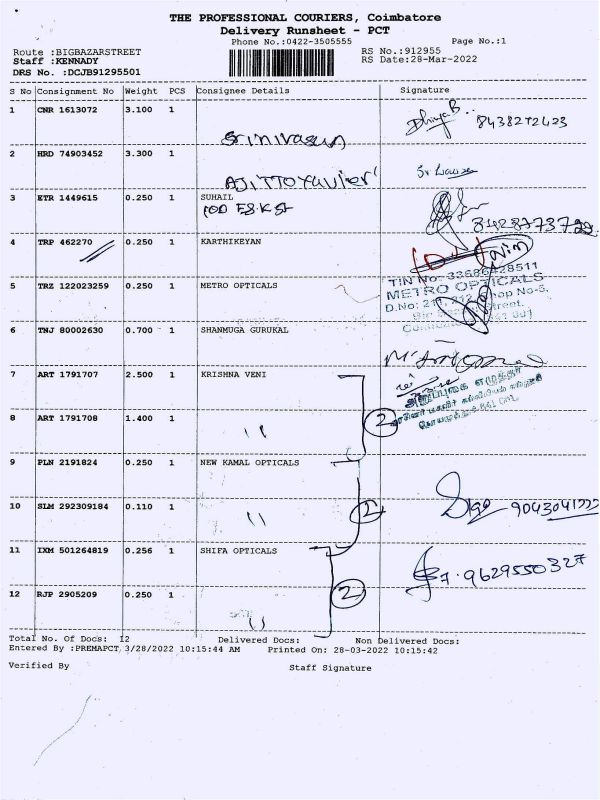 THE PROFESSIONAL COURIERS, Coimbatore
Delivery Runsheet - PCT
Phone No.:0422-3505555
Page No.:1
Route :BIGBAZARSTREET
RS No.:912955
Staff :KENNADY
RS Date:28-Mar-2022
DRS No. :DCJB91295501
S No Consignment No Weight PCS Consignee Details Signature
1 CNR 1613072 3.100 1
Srinivasan
8438272423
2 HRD 74903452 3.300 1
3 ETR 1449615 0.250 1 SUHAIL
4 TRP 462270 0.250 1 KARTHIKEYAN
5 TRZ 122023259 0.250 1 METRO OPTICALS
TIN No- 33686428511
METRO OPTICALS
6 TNJ 80002630 0.700 1 SHANMUGA GURUKAL
7 ART 1791707 2.500 1 KRISHNA VENI
8 ART 1791708 1.400 1
"
2
9 PLN 2191824 0.250 1 NEW KAMAL OPTICALS
10 SLM 292309184 0.110 1
"
2
11 IXM 501264819 0.256 1 SHIFA OPTICALS
9629550327
12 RJP 2905209 0.250 1
"
2
Total No. Of Docs: 12 Delivered Docs: Non Delivered Docs:
Entered By :PREMAPCT, 3/28/2022 10:15:44 AM Printed On: 28-03-2022 10:15:42
Verified By Staff Signature